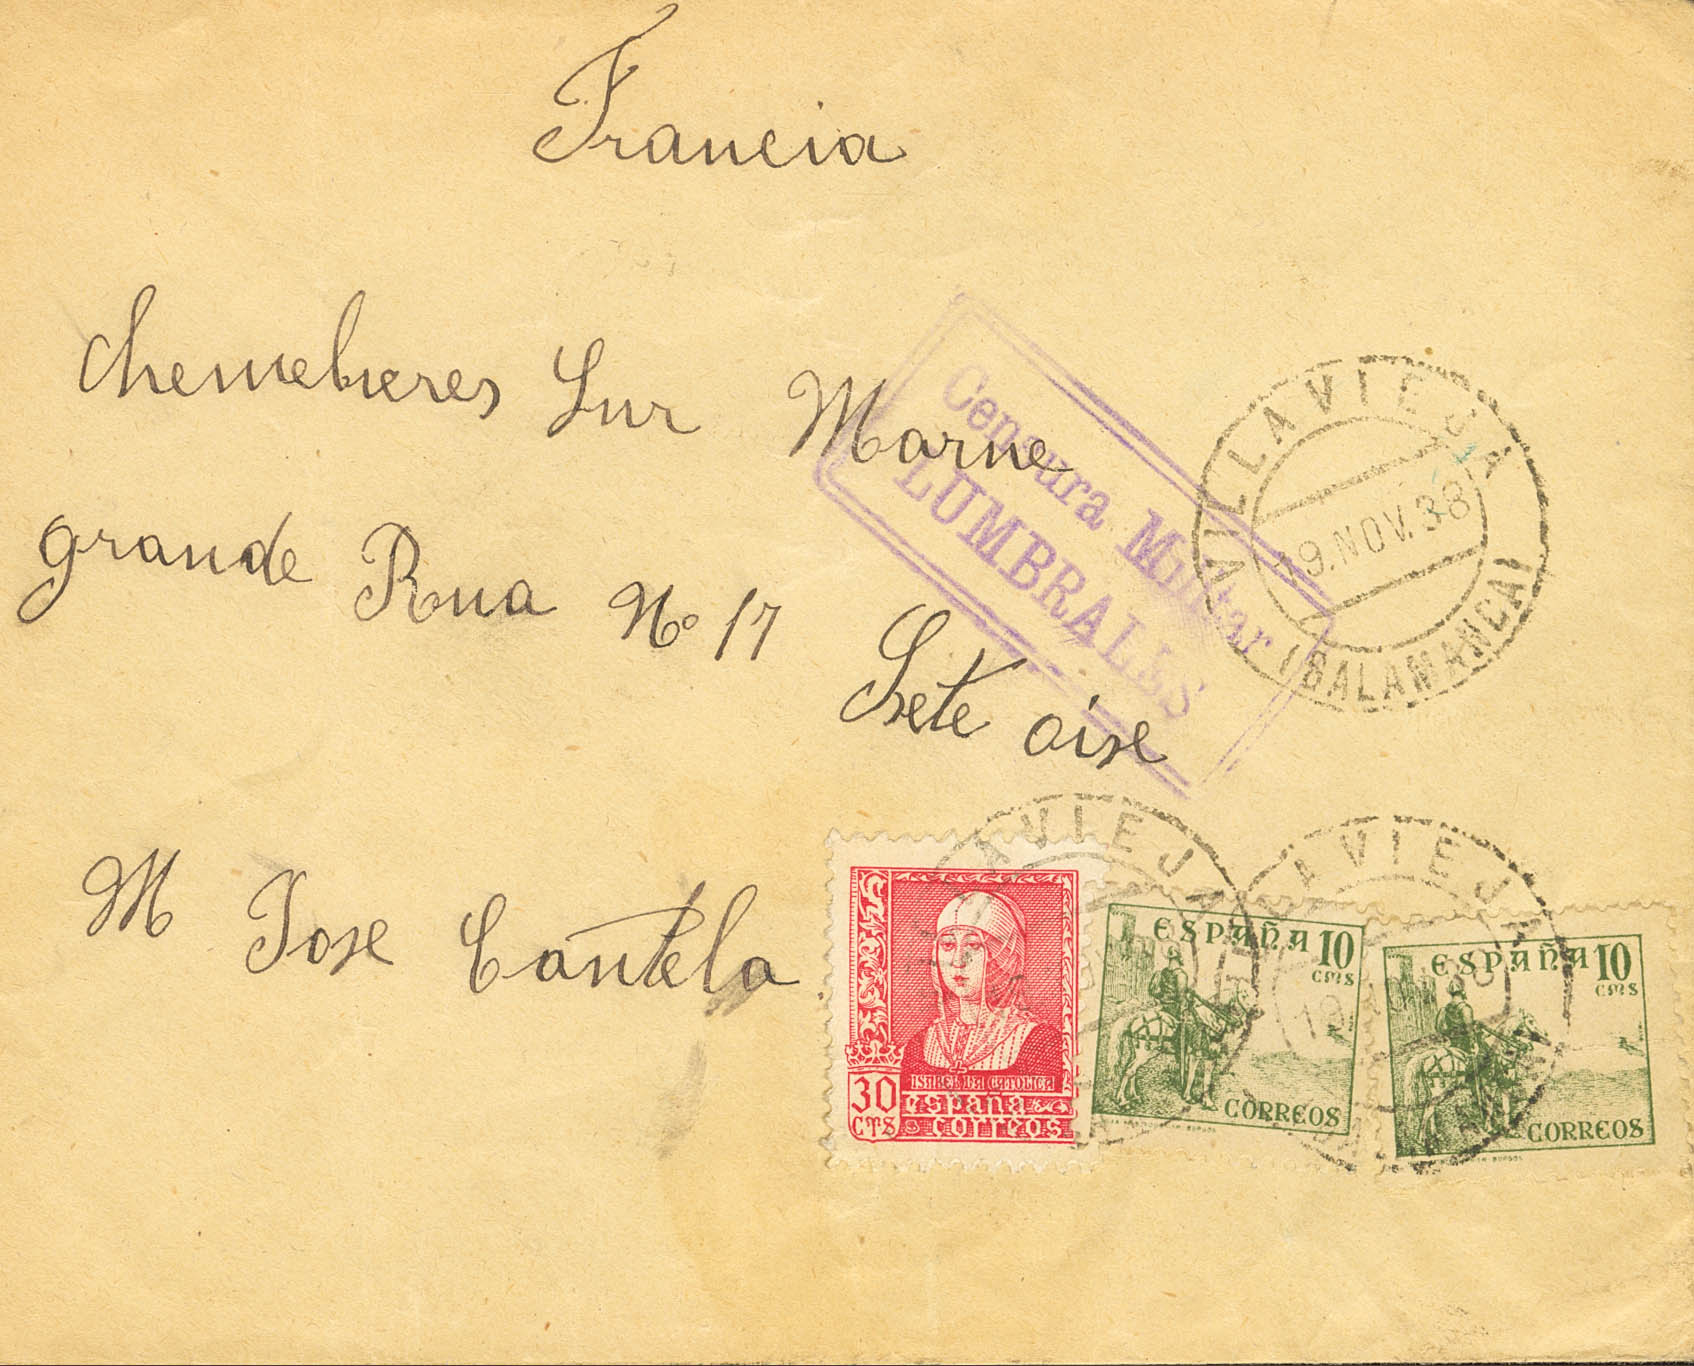 Francia
Chemebieres Sur Marne
grande Rua Nº 17
Sete oise
M Jose Cantela
Censura Militar
LUMBRALES
VILLAVIEJA
19.NOV.38
(SALAMANCA)
AVIEJA
AVIEJA
30
CTS
ISABEL LA CATOLICA
españa
correos
ESPAÑA 10
CMS
CORREOS
ESPAÑA 10
CMS
CORREOS